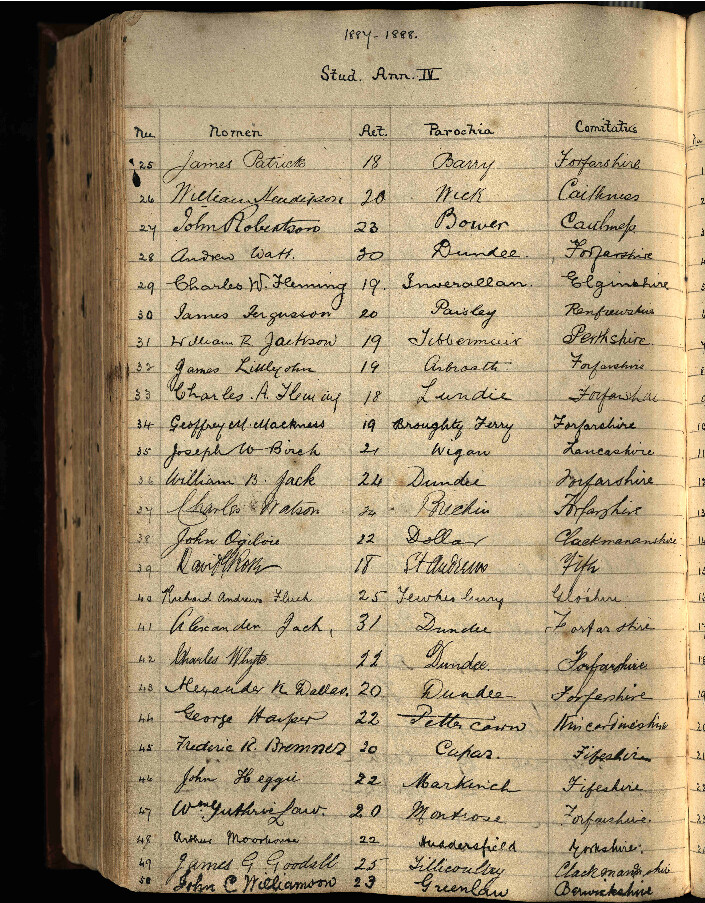 1887-1888.
Stud. Ann. IV
Nu Nomen Aet. Parochia Comitatus
25 James Patrick 18 Barry Forfarshire
26 William Henderson 20 Wick Caithness
27 John Robertson 23 Bower Caithness
28 Andrew Watt. 20 Dundee. Forfarshire
29 Charles W. Fleming 19. Inverallan. Elginshire
30 James Fergusson 20 Paisley Renfrewshire
31 William R Jackson 19 Tibbermuir Perthshire
32 James Littlejohn 19 Arbroath Forfarshire
33 Charles A. Fleming 18 Lundie Forfarshire
34 Geoffrey M. Mackness 19 Broughty Ferry Forfarshire
35 Joseph W Birch 21 Wigan Lancashire
36 William B. Jack 24 Dundee Forfarshire
37 Charles Watson Brechin Forfarshire
38 John Ogilvie 22 Dollar Clackmananshire
39 David Ross 18 St Andrews Fife
40 Richard Andrews 25 Tewkesbury Gloshire
41 Alexander Jack, 31 Dundee Forfarshire
42 Charles Whyte 22 Dundee. Forfarshire
43 Alexander K. Dallas. 20 Dundee Forfarshire
44 George Harper 22 Fettercairn Kincardineshire
45 Frederic R. Bremner 20 Cupar. Fifeshire
46 John Heggie 22 Markinch Fifeshire
47 Wm Guthrie Law. 20 Montrose Forfarshire.
48 Arthur Moorhouse 22 Huddersfield Yorkshire.
49 James G Goodall 25 Tillicoultry Clackmananshire
50 John C Williamson 23 Greenlaw Berwickshire